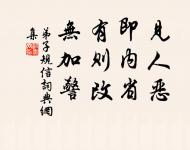 見人惡
即內省
有則改
無加警
弟子規信詞典網
集